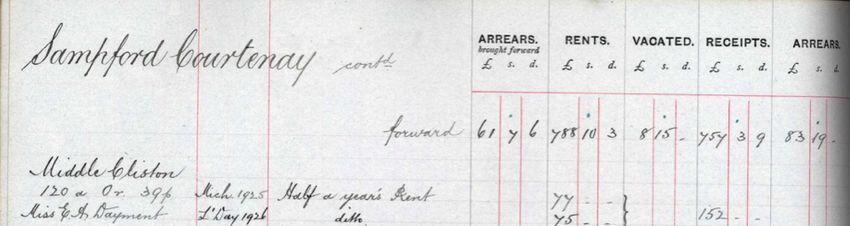 Sampford Courtenay contd
ARREARS. brought forward RENTS. VACATED. RECEIPTS. ARREARS.
£ s. d. £ s. d. £ s. d. £ s. d. £ s. d.
forward 61 7 6 788 10 3 8 15 - 757 3 9 83 19 -
Middle Cliston
120 a 0r. 39p Mich. 1925 Half a year's Rent 77 - -
Miss E A Dayment L'Day 1926 ditto 75 - - } 152 - -